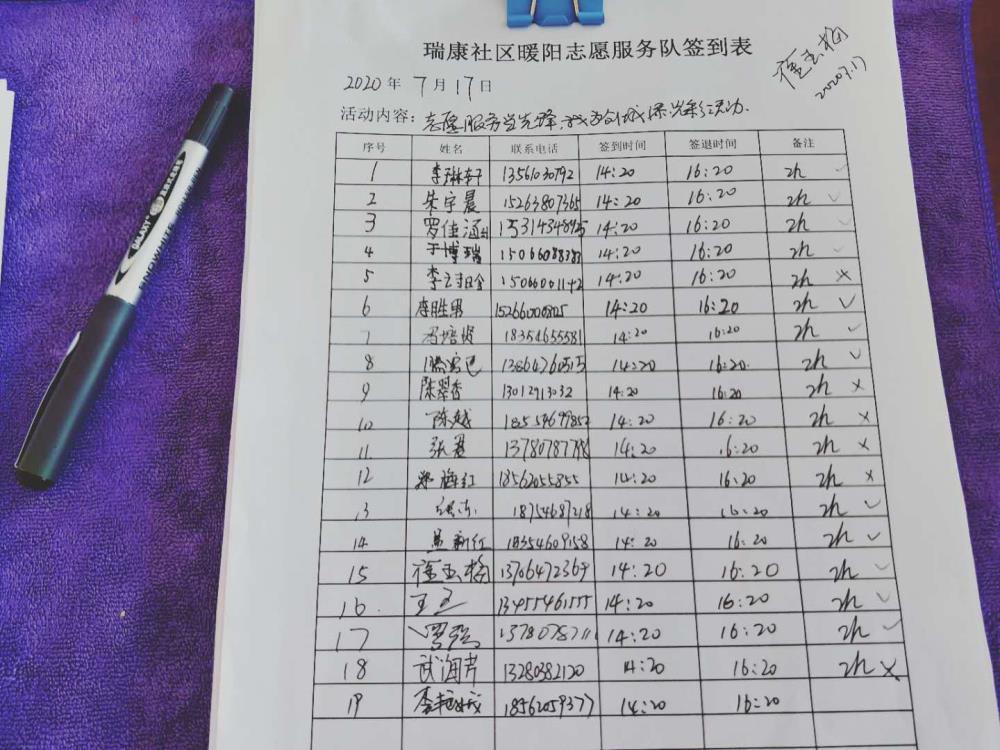 瑞康社区暖阳志愿服务队签到表
徐玉梅
2020.7.17
2020年 7月17日
活动内容：志愿服务当先锋
序号 姓名 联系电话 签到时间 签退时间 备注
1 李琳轩 1356103092 14:20 16:20 2h
2 朱宇晨 15263807365 14:20 16:20 2h
3 罗佳涵 14:20 16:20 2h
4 于博瑞 15066088383 14:20 16:20 2h
5 14:20 16:20 2h ×
6 李胜男 15266000825 14:20 16:20 2h ✓
7 18354655581 14:20 16:20 2h ✓
8 13864760515 14:20 16:20 2h ✓
9 陈翠香 13012913032 14:20 16:20 2h ×
10 陈越 18554699852 14:20 16:20 2h ×
11 14:20 16:20 2h ×
12 郑海红 18562055855 14:20 16:20 2h ×
13 18754687218 14:20 16:20 2h ✓
14 18354609158 14:20 16:20 2h ✓
15 徐玉梅 13706472369 14:20 16:20 2h ✓
16. 王玉 13455461555 14:20 16:20 2h ✓
17 14:20 16:20 2h ✓
18 武海芹 13280382120 14:20 16:20 2h ×
19 18562059377 14:20 16:20
GALAXY